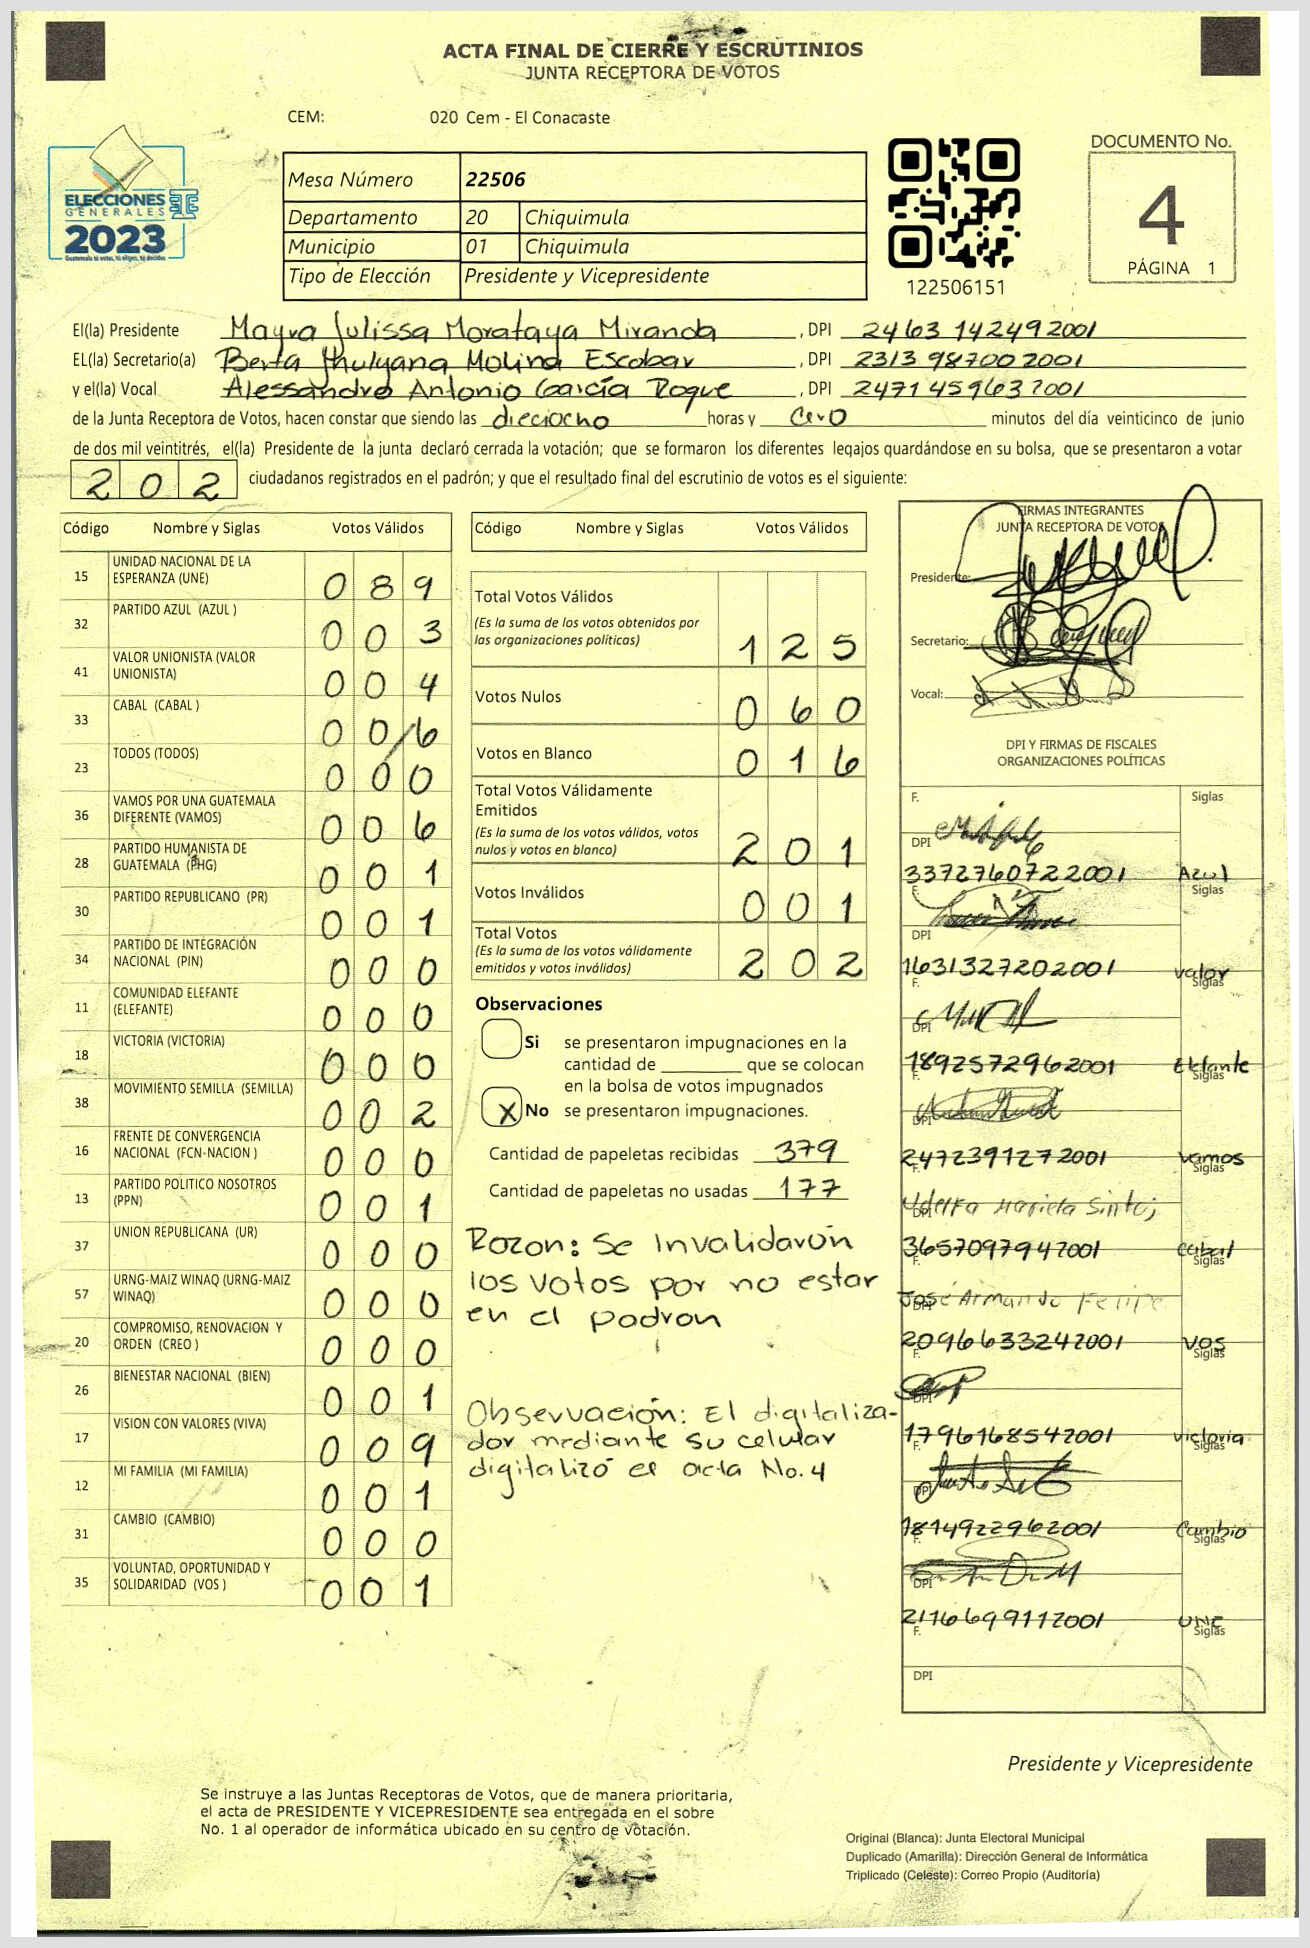 ACTA FINAL DE CIERRE Y ESCRUTINIOS
JUNTA RECEPTORA DE VOTOS
CEM: 020 Cem - El Conacaste
DOCUMENTO No.
4
PÁGINA 1
ELECCIONES
GENERALES
2023
Guatemala tú votas, tú eliges, tú decides
Mesa Número 22506
Departamento 20 Chiquimula
Municipio 01 Chiquimula
Tipo de Elección Presidente y Vicepresidente
122506151
El(la) Presidente Mayra Julissa Morataya Miranda, DPI 2463 14249 2001
EL(la) Secretario(a) Berta Jhulyana Molina Escobar, DPI 2313 98700 2001
y el(la) Vocal Alessandro Antonio García Roque, DPI 2471 45963 2001
de la Junta Receptora de Votos, hacen constar que siendo las dieciocho horas y cero minutos del día veinticinco de junio
de dos mil veintitrés, el(la) Presidente de la junta declaró cerrada la votación; que se formaron los diferentes legajos guardándose en su bolsa, que se presentaron a votar
202 ciudadanos registrados en el padrón; y que el resultado final del escrutinio de votos es el siguiente:
Código Nombre y Siglas Votos Válidos
15 UNIDAD NACIONAL DE LA
ESPERANZA (UNE) 089
32 PARTIDO AZUL (AZUL ) 003
41 VALOR UNIONISTA (VALOR
UNIONISTA) 004
33 CABAL (CABAL ) 006
23 TODOS (TODOS) 000
36 VAMOS POR UNA GUATEMALA
DIFERENTE (VAMOS) 006
28 PARTIDO HUMANISTA DE
GUATEMALA (PHG) 001
30 PARTIDO REPUBLICANO (PR) 001
34 PARTIDO DE INTEGRACIÓN
NACIONAL (PIN) 000
11 COMUNIDAD ELEFANTE
(ELEFANTE) 000
18 VICTORIA (VICTORIA) 000
38 MOVIMIENTO SEMILLA (SEMILLA) 002
16 FRENTE DE CONVERGENCIA
NACIONAL (FCN-NACION ) 000
13 PARTIDO POLITICO NOSOTROS
(PPN) 001
37 UNION REPUBLICANA (UR) 000
57 URNG-MAIZ WINAQ (URNG-MAIZ
WINAQ) 000
20 COMPROMISO, RENOVACION Y
ORDEN (CREO ) 000
26 BIENESTAR NACIONAL (BIEN) 001
17 VISION CON VALORES (VIVA) 009
12 MI FAMILIA (MI FAMILIA) 001
31 CAMBIO (CAMBIO) 000
35 VOLUNTAD, OPORTUNIDAD Y
SOLIDARIDAD (VOS ) 001
Código Nombre y Siglas Votos Válidos
Total Votos Válidos
(Es la suma de los votos obtenidos por
las organizaciones políticas) 125
Votos Nulos 060
Votos en Blanco 016
Total Votos Válidamente
Emitidos
(Es la suma de los votos válidos, votos
nulos y votos en blanco) 201
Votos Inválidos 001
Total Votos
(Es la suma de los votos válidamente
emitidos y votos inválidos) 202
Observaciones
Si se presentaron impugnaciones en la
cantidad de ________ que se colocan
en la bolsa de votos impugnados
X No se presentaron impugnaciones.
Cantidad de papeletas recibidas 379
Cantidad de papeletas no usadas 177
Rozon: Se invalidarón
los votos por no estar
en el padron
Observación: El digitaliza-
dor mediante su celular
digitalizó el acta No.4
FIRMAS INTEGRANTES
JUNTA RECEPTORA DE VOTOS
Presidente:
Secretario:
Vocal:
DPI Y FIRMAS DE FISCALES
ORGANIZACIONES POLÍTICAS
F. Siglas
DPI
3372760722001 Azul
F. Siglas
DPI
1631327202001 valor
F. Siglas
DPI
1892572962001 Elefante
F. Siglas
DPI
2472391272001 vamos
F. Siglas
DPI
3657097942001 Cabal
F. Siglas
José Armando Felipe
DPI
2096633242001 VOS
F. Siglas
DPI
1796168542001 victoria
F. Siglas
DPI
1814922962001 Cambio
F. Siglas
DPI
2116699112001 UNE
F. Siglas
DPI
Presidente y Vicepresidente
Se instruye a las Juntas Receptoras de Votos, que de manera prioritaria,
el acta de PRESIDENTE Y VICEPRESIDENTE sea entregada en el sobre
No. 1 al operador de informática ubicado en su centro de votación.
Original (Blanca): Junta Electoral Municipal
Duplicado (Amarilla): Dirección General de Informática
Triplicado (Celeste): Correo Propio (Auditoría)